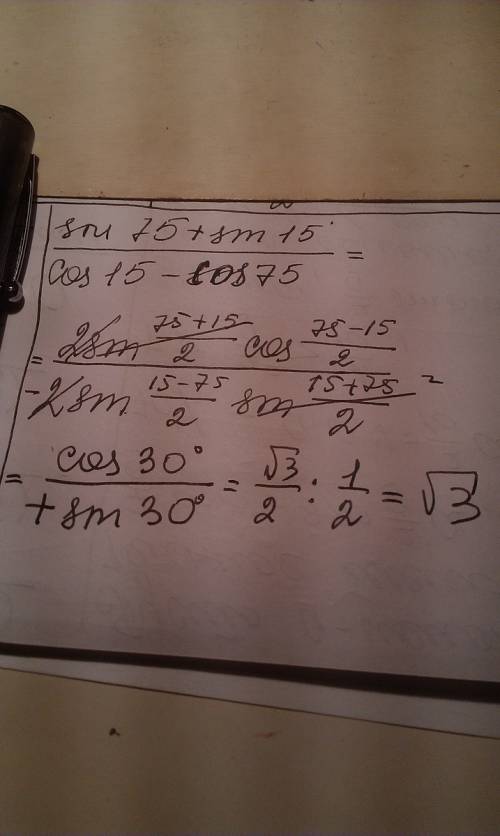 sin 75 + sin 15
cos 15 - cos 75
=
= 2 sin 75+15/2 cos 75-15/2
-2 sin 15-75/2 sin 15+75/2 =
= cos 30° / + sin 30° = √3/2 : 1/2 = √3